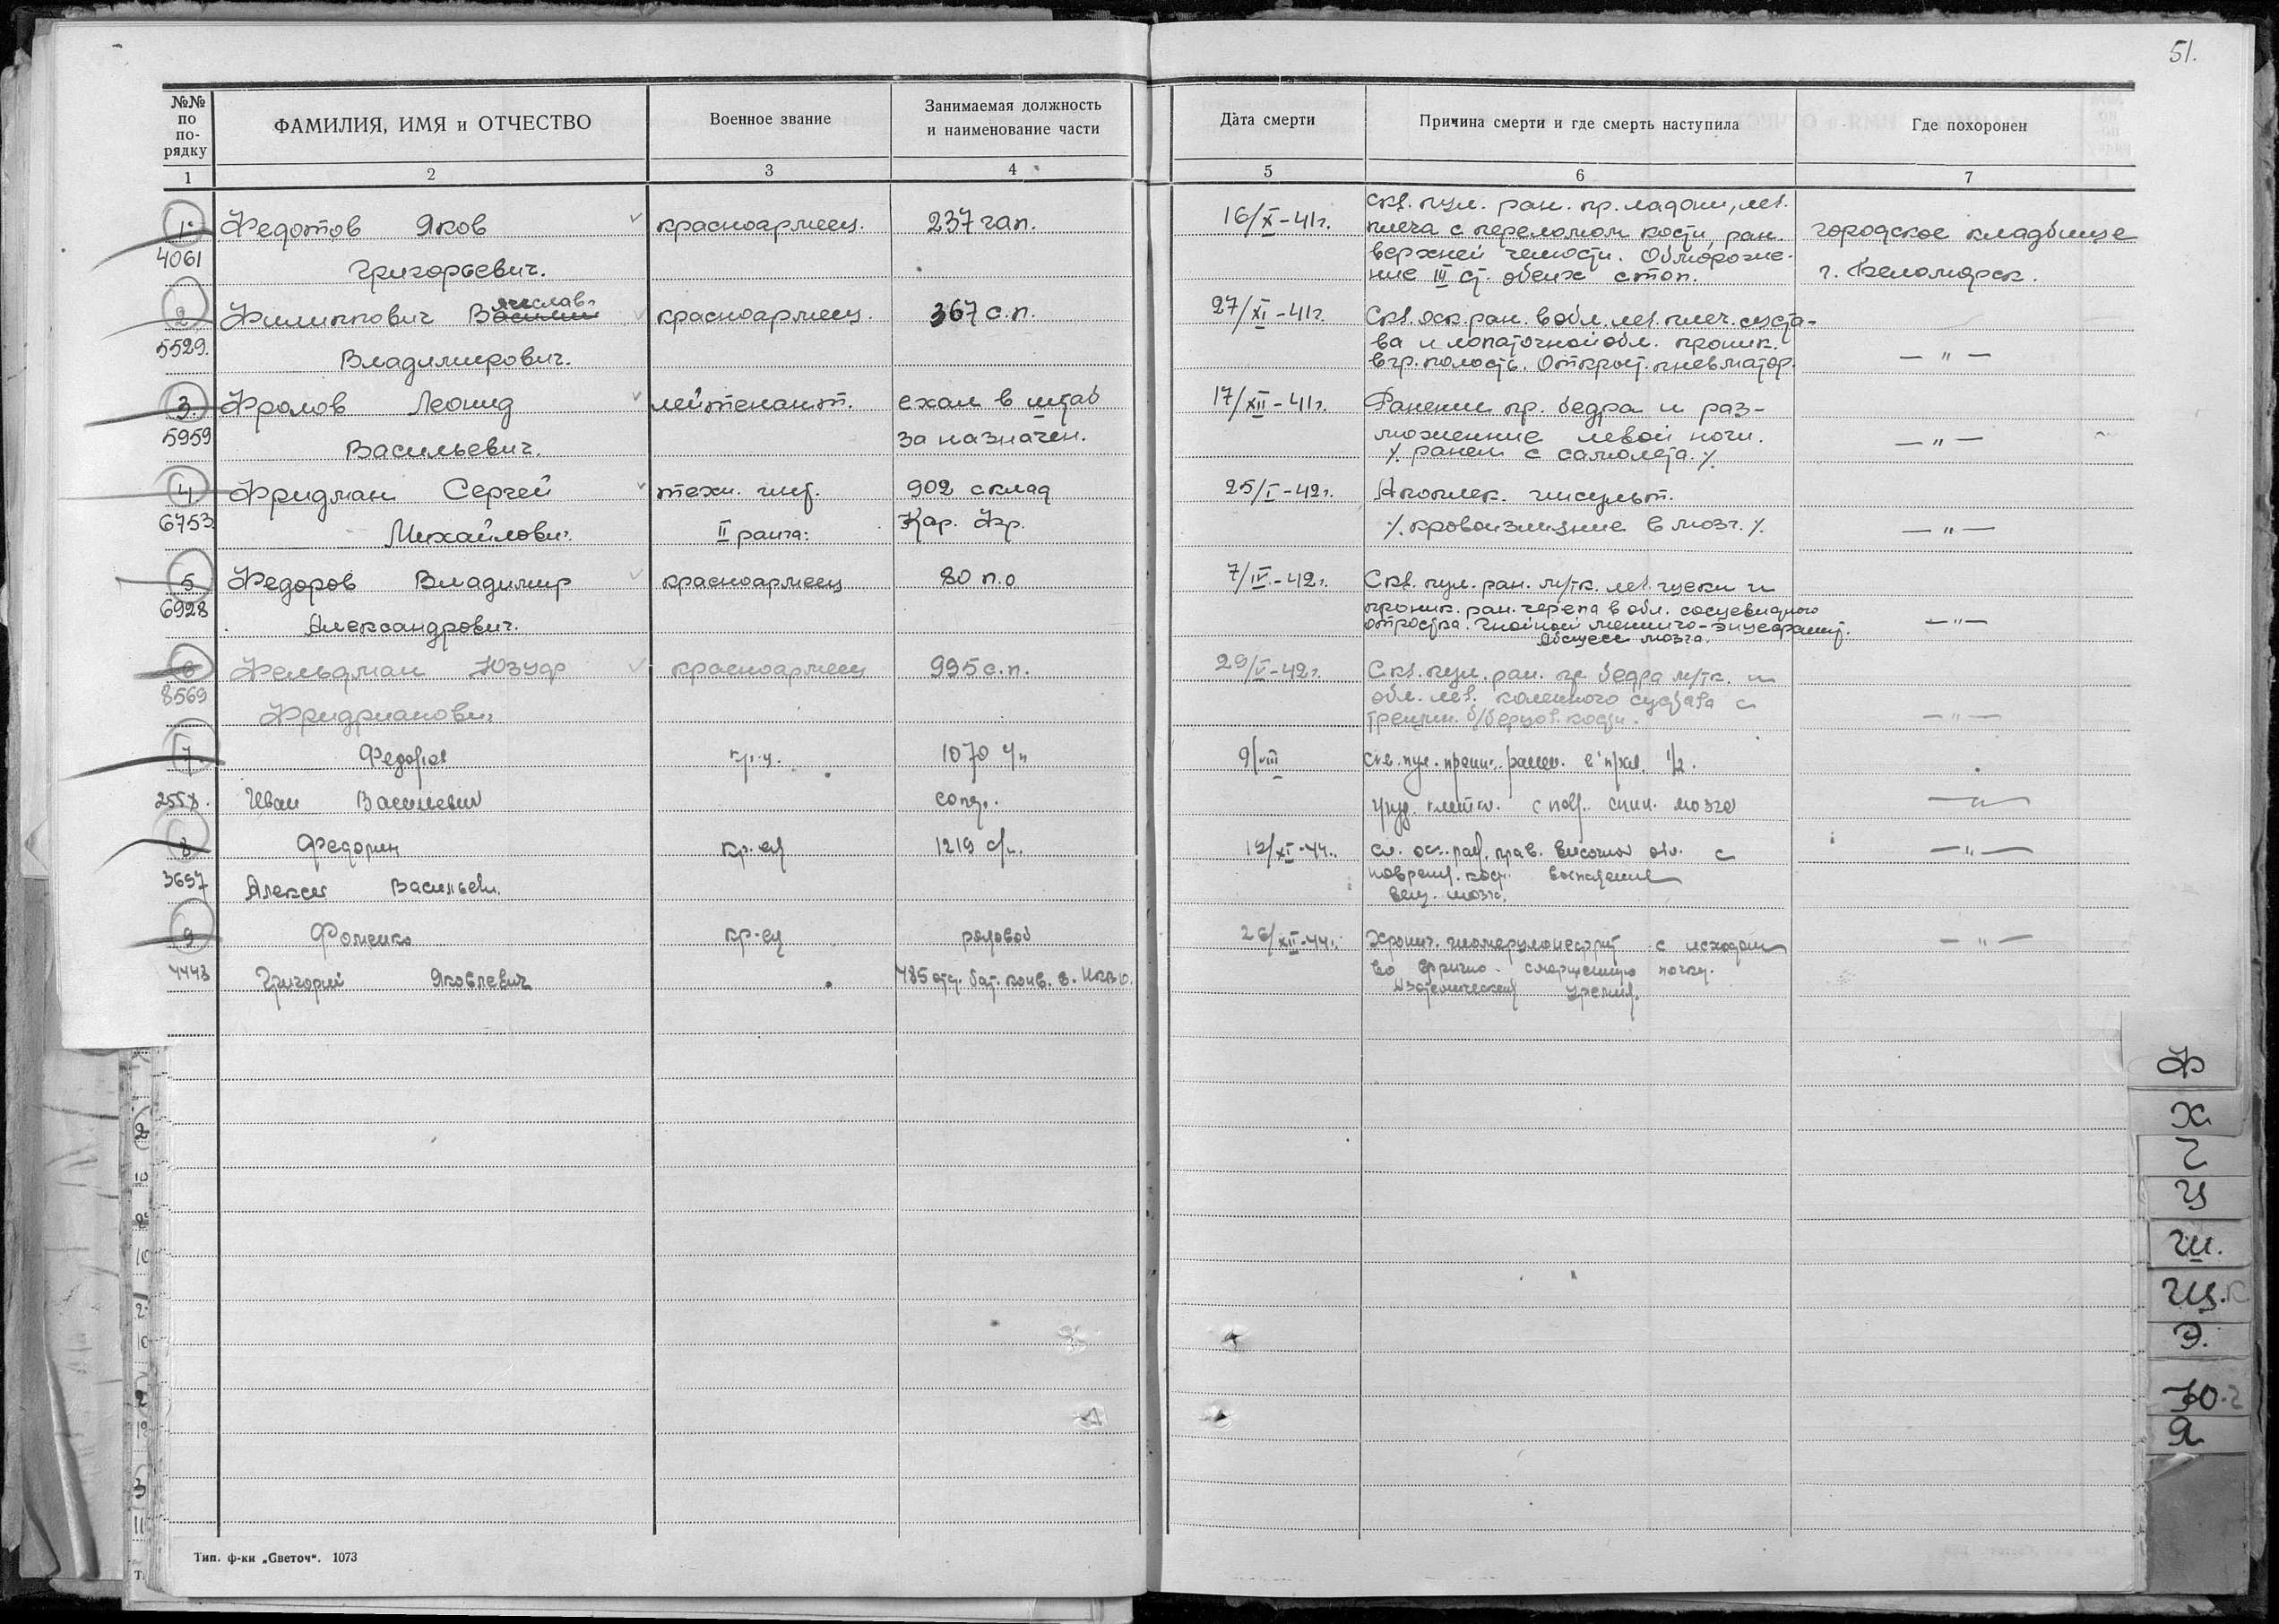 51.
№№ по по-рядку
ФАМИЛИЯ, ИМЯ и ОТЧЕСТВО
Военное звание
Занимаемая должность и наименование части
Дата смерти
Причина смерти и где смерть наступила
Где похоронен
1 2 3 4 5 6 7
1. Федотов Яков красноармеец. 237 гап. 16/X-41г. Скв. пул. ран. пр. ладони, лев.
плеча с переломом кости, ран. городское кладбище
4061 Григорьевич. верхней челюсти. Обмороже-
ние III ст. обеих стоп. г. Беломорск.
2 Филиппович Василий ячеслав красноармеец. 367 с.п. 27/XI-41г. Скв. оск. ран. в обл. лев. плеч. суста-
5529. Владимирович. ва и лопаточной обл. проник.
в гр. полость. Открыт. пневматор. — " —
3. Фролов Леонид лейтенант. ехал в штаб 17/XII-41г. Ранении пр. бедра и раз-
5959 Васильевич. за назначен. можжение левой ноги. — " —
%. ранен с самолета. %
4 Фридман Сергей техн. инт. 902 склад 25/I-42г. Апоплек. инсульт.
6753. Михайлович. II ранга. Кар. Фр. %. кровоизлияние в мозг. % — " —
5 Федоров Владимир красноармеец 80 п.о 7/IV-42г. Скв. пул. ран. м/тк. лев. щеки и
6928 Александрович. проник. ран. черепа в обл. сосцевидного
отростка. Гнойной менинго-энцефалит. — " —
Абсцесс мозга.
6 Фельдман Юзуф красноармеец 995 с.п. 29/V-42г. Скв. пул. ран. пр бедра м/тк. и
8569 обл. лев. коленного сустава с
Фридрианович трещин. б/берцов. кости. — " —
7. Федоров 1070 с/п 9/VIII Скв. пул. прони. ранен. в прав. 1/2
255 Иван Васильевич груд. клетки. с повр. спин. мозга — " —
8 Федорин кр-ец 1219 с/п. 19/XI-44. оск. ран. прав. височной обл. с — " —
3697 Алексей Васильев. поврежд. кост. воспаление
вещ. мозга.
9 Фоменко кр-ец рядовой 26/XII-44г. Хронич. гломерулонефрит с исходом — " —
4443 Григорий Яковлевич 485 отд. бат. конв. в. НКВД. во вторично-сморщенную почку.
Азотемическая уремия.
Тип. ф-ки „Светоч“. 1073
Ф
Х
Ч
Ц
Ш.
Щ.
Э.
Ю.
Я